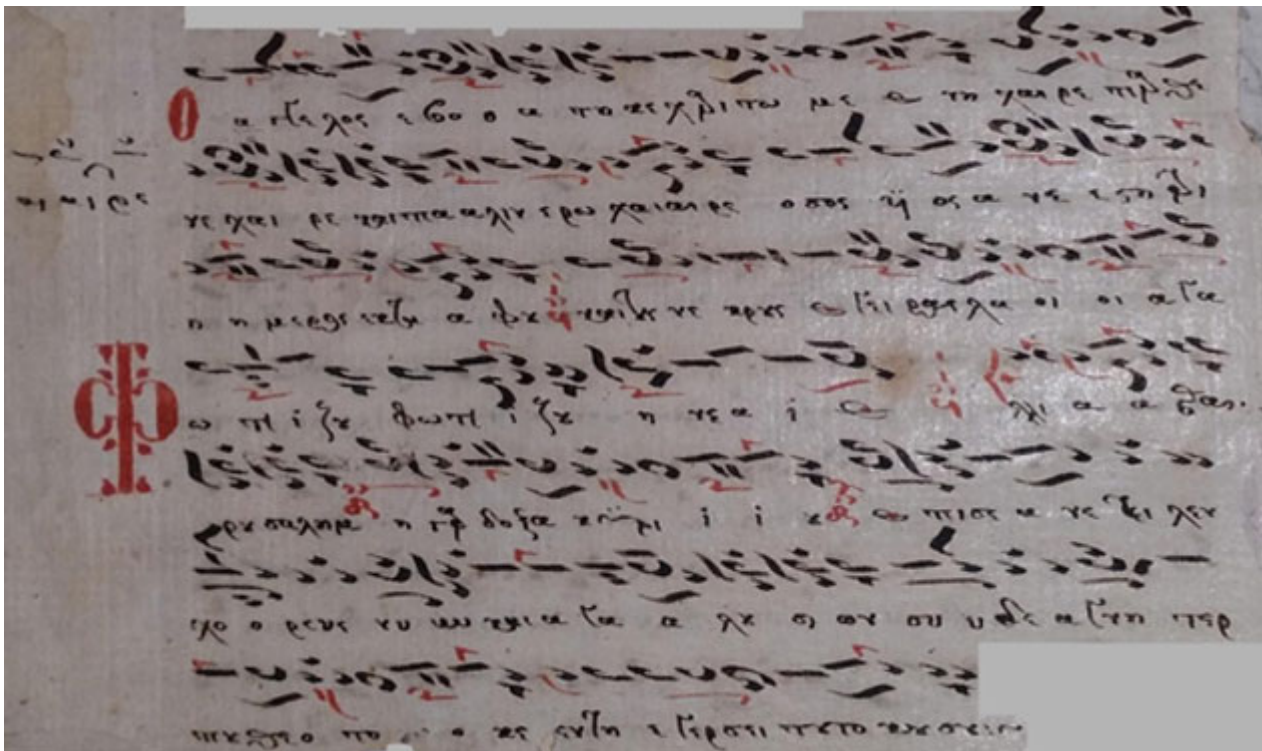 Ο α γγελος ε βο ο α τη κεχαριτω με ε νη χαιρε παρθε
αι αι ρε
νε χαι ρε και πααλιν ερω χαιαιρε ο σος υι ος α νε ε στη τρι
η η μερος εκ τα α φου και τους νε κρους ε γει ρας λα οι οι α γα
Φ ω τι ι ζου φωτι ι ζου η νε α ι ε λλι α α σθαι
ρουσαλημ η γαρ δοξα κυρι ι ι ου ε πι σε α νε τει λεν
χο ο ρευε νυ υν και α γα α λλου σι ων συ υ δε α γνη τερ
που θεο το ο κε εν τη ε γερσει του το κου σου